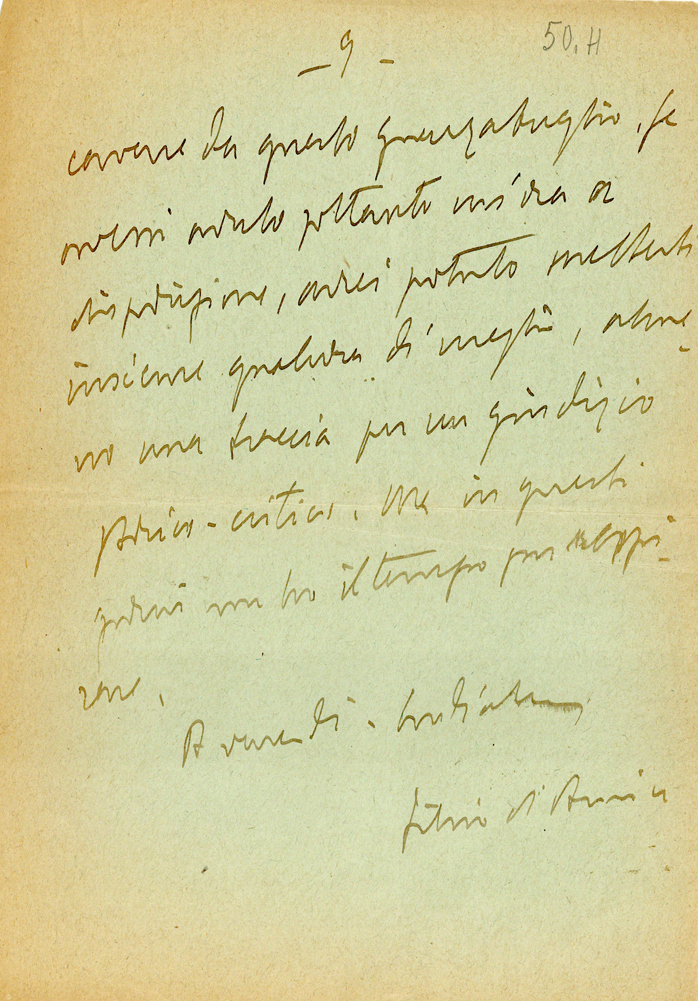 - 9 -
50.H
cavare da questo guazzabuglio. Se
avessi avuto soltanto un'ora a
disposizione, avrei potuto metterti
insieme qualcosa di meglio, alme-
no una traccia per un giudizio
storico-critico. Ma in questi
giorni non ho il tempo per
rare.
A rivederci - cordialm
Silvio d'Amico